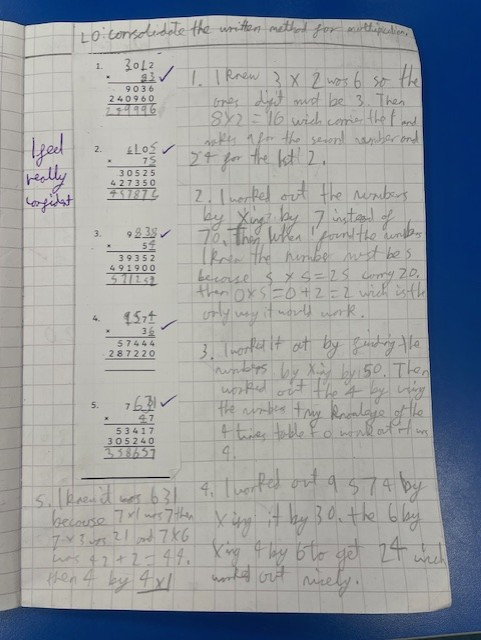 LO: consolidate the written method for multiplication.
1. 3012
× 83 ✓
9036
240960
249996
2. 6105
× 75 ✓
30525
427350
457876
3. 9838
× 54 ✓
39352
491900
571252
4. 9574
× 36 ✓
57444
287220
5. 7631
× 47 ✓
53417
305240
358657
I feel
really
confident
1. I knew 3 x 2 was 6 so the
ones digit must be 3. Then
8x2=16 wich carries the 1 and
makes 9 for the second number and
24 for the last 2.
2. I worked out the numbers
by Xing by 7 instead of
70. Then when I found the number
I knew the number must be 5
because 5 x 5=25 carry 20.
then 0x5=0+2=2 wich is the
only way it would work.
3. I worked it out by finding the
numbers by Xing by 50. Then
worked out the 4 by using
the number + my knowlege of the
4 times table to work out it was
4.
4. I worked out 9574 by
Xing it by 30. the 6 by
Xing 4 by 6 to get 24 wich
worked out nicely.
5. I knew it was 631
because 7x1 was 7 then
7x3 was 21 and 7x6
was 42+2=44.
then 4 by 4x1